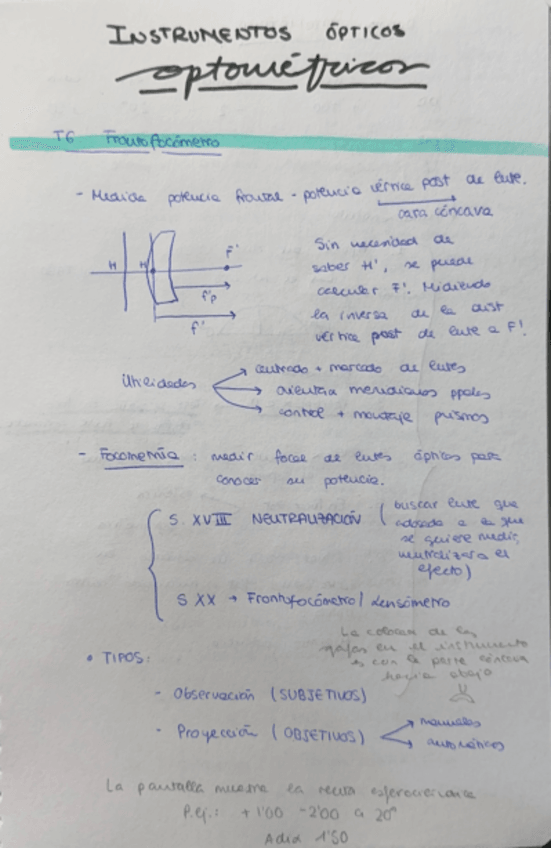 INSTRUMENTOS ÓPTICOS
optométricos
T6 Frontofocómetro
- Medida potencia frontal - potencia vértice post de lente.
cara cóncava
H H' F'
f'p
f'
Sin necesidad de
saber H', se puede
calcular F'. Midiendo
la inversa de la dist
vértice post de lente a F'.
Utilidades
centrado + marcado de lentes
orienta meridianos ppales
control + montaje prismas
- Focometría: medir focal de lentes ópticas para
conocer su potencia.
S. XVIII NEUTRALIZACIÓN (buscar lente que
adosada a la que
se quiere medir,
neutralizara el
efecto)
S XX → Frontofocómetro / Lensómetro
La colocan de las
gafas en el instrumento
es con la parte cóncava
hacia abajo
• TIPOS:
- Observación (SUBJETIVOS)
- Proyección (OBJETIVOS)
manuales
automáticos
La pantalla muestra la receta esferocilíndrica
P.ej.: +1'00 -2'00 a 20º
Adic 1'50